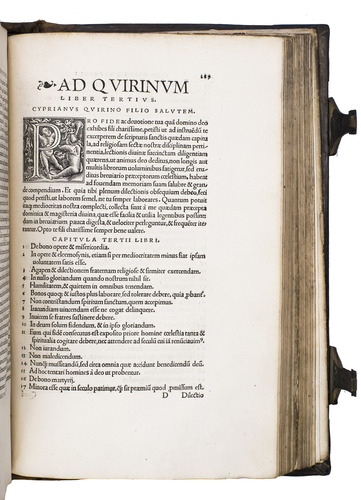 289
AD QVIRINVM
LIBER TERTIVS.
CYPRIANVS QVIRINO FILIO SALVTEM.
PRO FIDE ac deuotione tua quā domino deo
exhibes fili charissime, petisti ut ad instruēdū te
excerperem de scripturis sanctis quædam capita
la, ad religiosam sectæ nostræ disciplinam perti-
nentia, lectionis diuinæ succinctam diligentiam
quærens, ut animus deo deditus, non longis aut
multis librorum uoluminibus fatigetur, sed eru
ditus breuiario præceptorum cœlestium, habeat
ad fouendam memoriam suam salubre & gran
de compendium. Et quia tibi plenum dilectionis obsequium debeo, feci
quod petisti, ut laborem semel, ne tu semper laborares. Quantum potuit
itaq mediocritas nostra complecti, collecta sunt à me quædam præcepta
dominica & magisteria diuina, quæ esse facilia & utilia legentibus possint
dum in breuiarium pauca digesta, & uelociter perleguntur, & frequēter ite
rantur. Opto te fili charissime semper bene ualere.
CAPITVLA TERTII LIBRI.
1 De bono opere & misericordia.
2 In opere & elemosynis, etiam si per mediocritatem minus fiat ipsam
uoluntatem satis esse.
3 Agapen & dilectionem fraternam religiose & firmiter exercendam.
4 In nullo gloriandum quando nostrum nihil sit.
5 Humilitatem, & quietem in omnibus tenendam.
6 Bonos quoq & iustos plus laborare, sed tolerare debere, quia
7 Non contristandum spiritum sanctum, quem accepimus.
8 Iracundiam uincendam esse ne cogat delinquere.
9 Inuicem se fratres sustinere debere.
10 In deum solum fidendum, & in ipso gloriandum.
11 Eum qui fidē consecutus est exposito priore homine cœlestia tantū &
spiritualia cogitare debere, nec attendere ad seculū cui iā renūciauit.
12 Non iurandum.
13 Non maledicendum.
14 Nunq mussitandū, sed circa omnia quæ accidunt benedicendū deū.
15 Ad hoc tentari homines à deo ut probentur.
16 De bono martyrij.
17 Minora esse quæ in seculo patimur, q̄ sit præmiū quod
D Dilectio